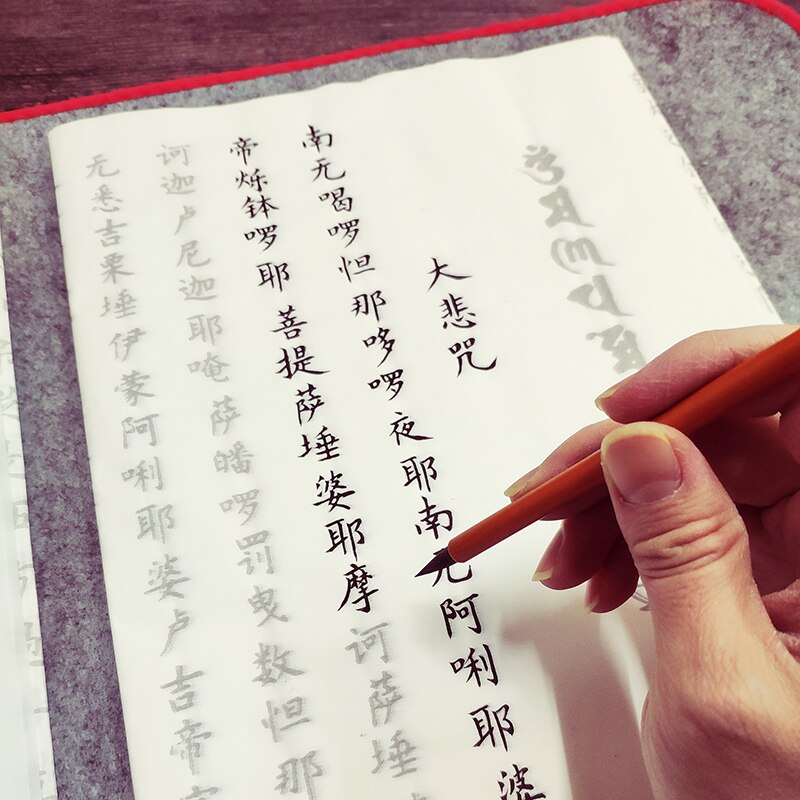 大悲咒
南无喝啰怛那哆啰夜耶南无阿唎耶婆
帝烁钵啰耶菩提萨埵婆耶摩诃萨埵
诃迦卢尼迦耶唵萨皤啰罚曳数怛那
无悉吉栗埵伊蒙阿唎耶婆卢吉帝